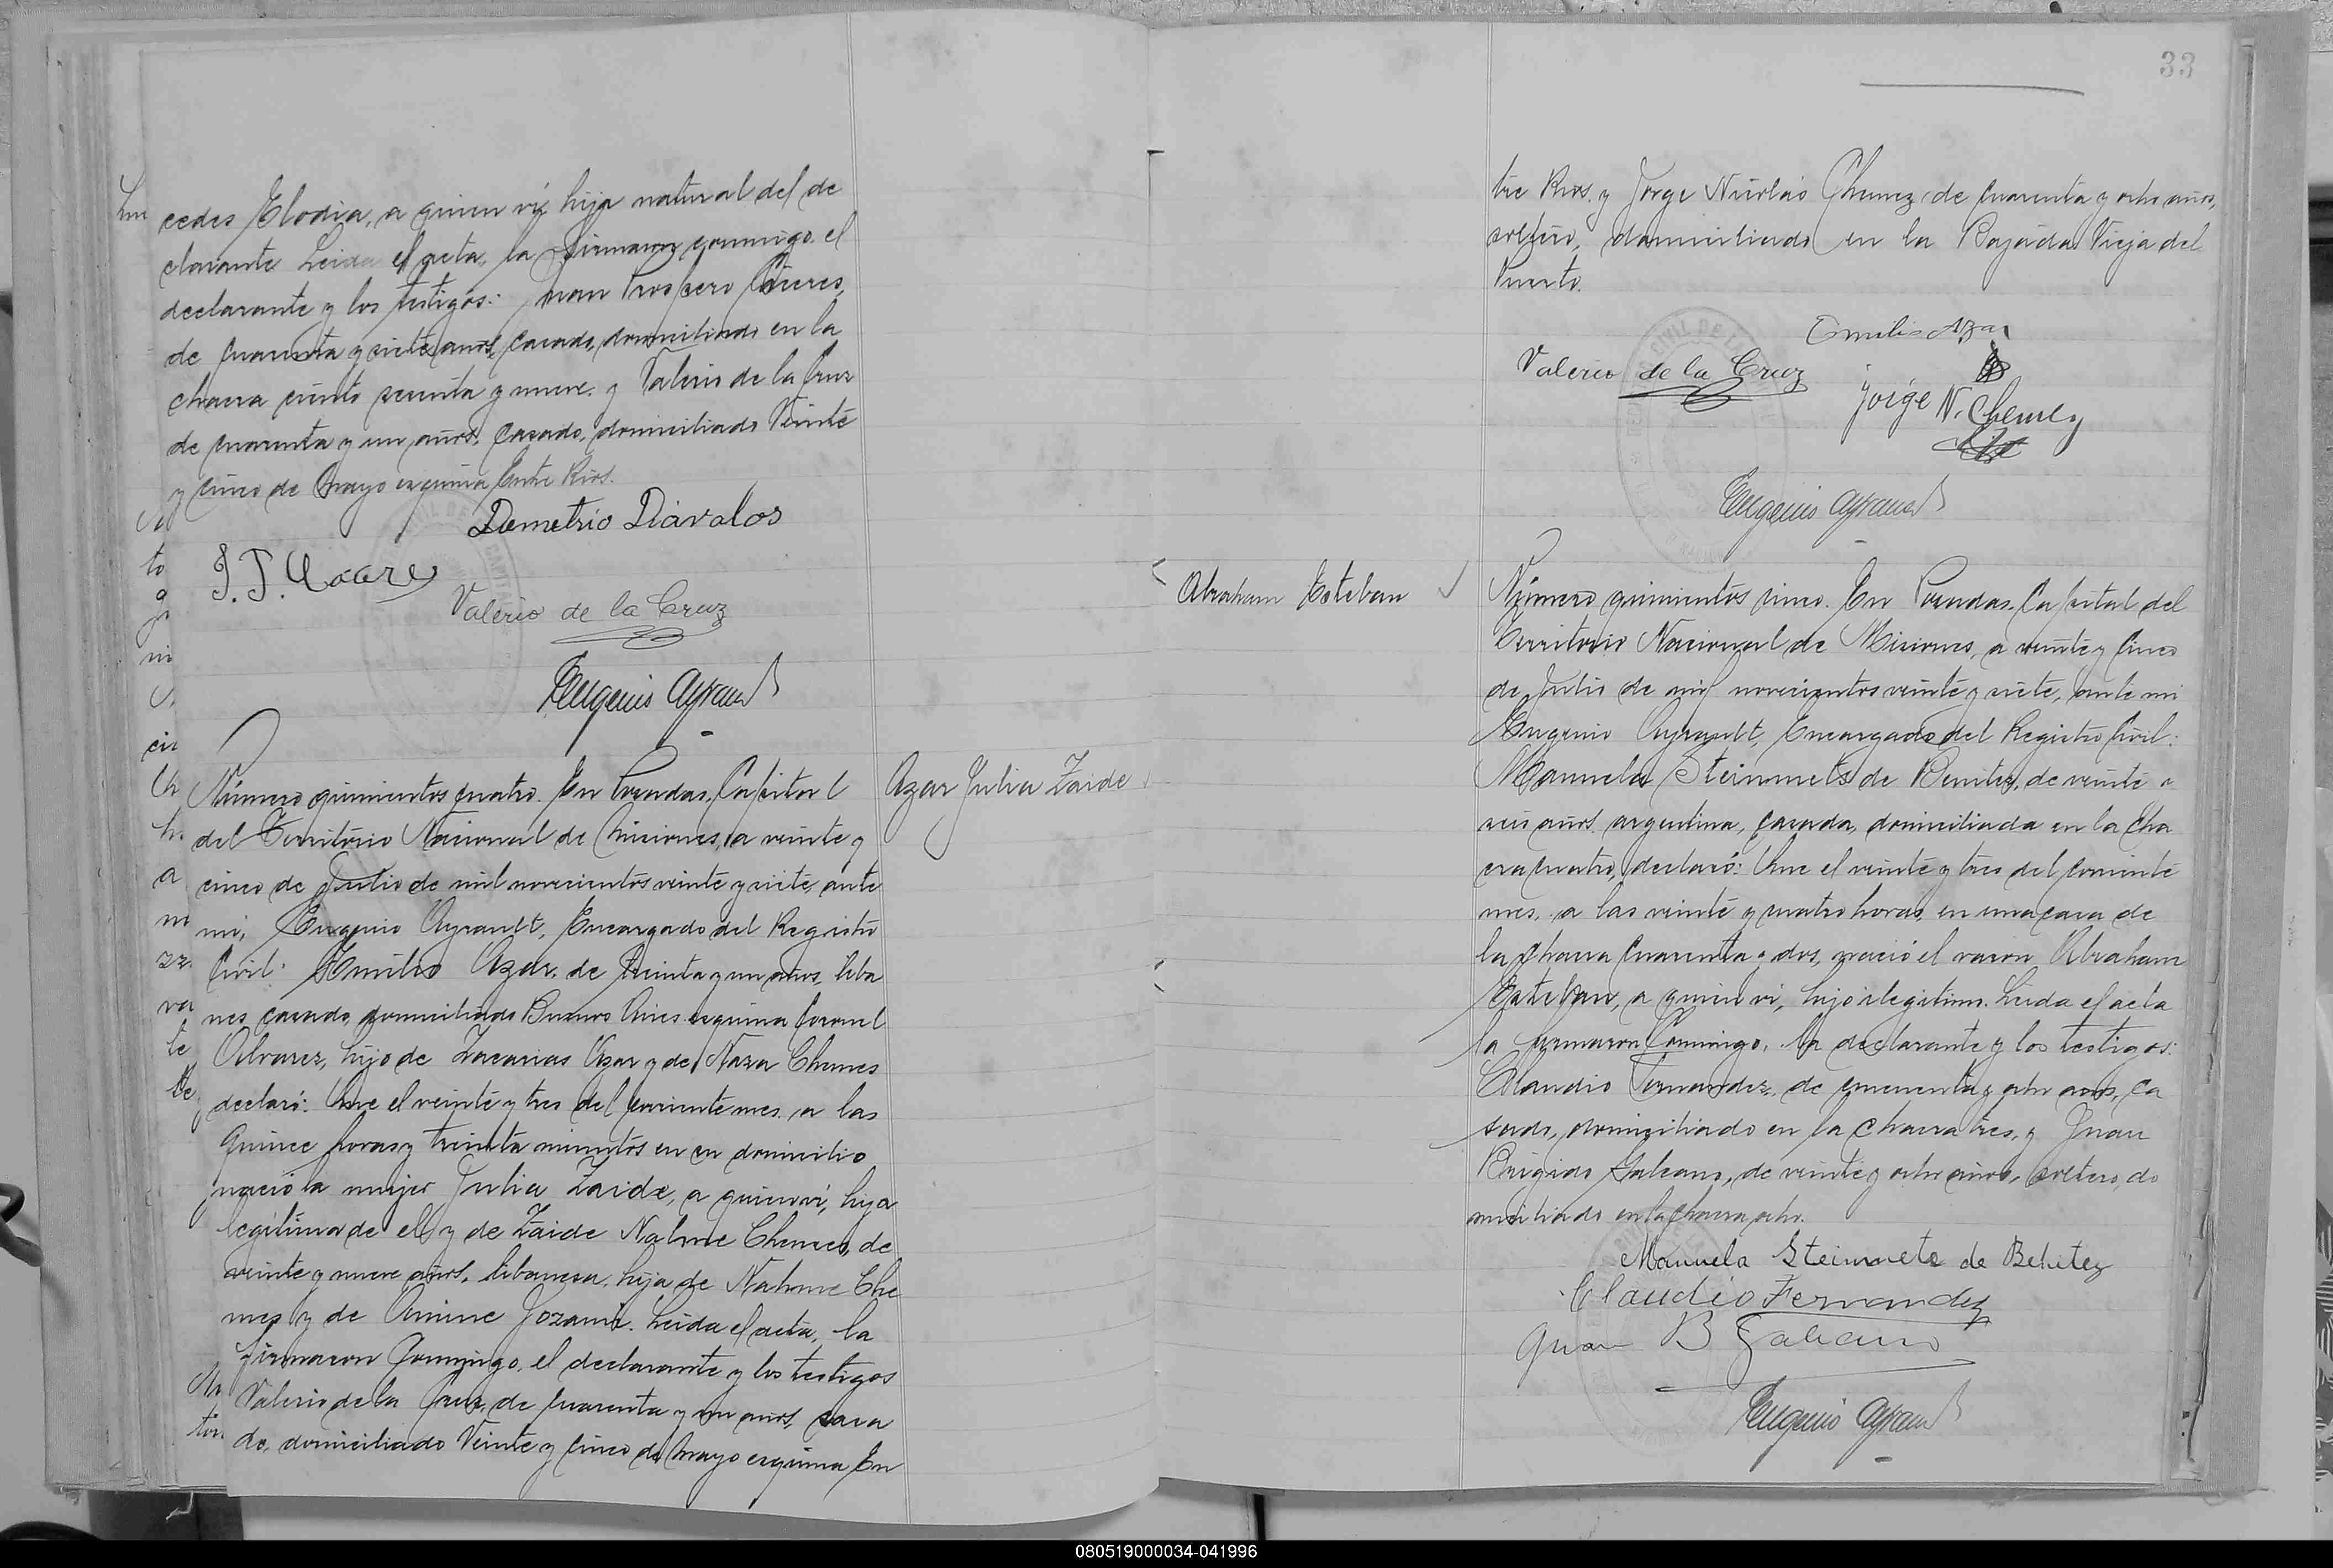 cedes Elodia, a quien ví, hija natural del de
clarante. Leida el acta, la firmaron conmigo, el
declarante y los testigos: Juan Prospero Cáceres,
de cuarenta y siete años, casado, domiciliado en la
chacra ciento sesenta y nueve. y Valerio de la Cruz
de cuarenta y un años, casado, domiciliado Veinte
y cinco de Mayo esquina Entre Rios.
Demetrio Diávalos
Valerio de la Cruz
Eugenio Ayrault
Azar Julia Zaide
Número quinientos cuatro. En Posadas, Capital
del Territorio Nacional de Misiones, a veinte y
cinco de Julio de mil novecientos veinte y siete, ante
mi, Eugenio Ayrault, Encargado del Registro
Civil: Emilio Azar, de treinta y un años, liba
nes, casado, domiciliado Buenos Aires esquina Coronel
Alvarez, hijo de Zacarias Azar y de Naza Chemes
declaró: Que el veinte y tres del corriente mes, a las
quince horas y treinta minutos en su domicilio
nació la mujer Julia Zaide, a quien ví, hija
legítima de el y de Zaide Nahme Chemes, de
veinte y nueve años, libanesa, hija de Nahme Che
mes y de Amine Jozami. Leida el acta, la
firmaron conmigo, el declarante y los testigos
Valerio de la Cruz, de cuarenta y un años, casa
do, domiciliado Veinte y cinco de Mayo esquina En
33
tre Rios. y Jorge Nicolás Chemez, de cuarenta y ocho años,
soltero, domiciliado en la Bajada Vieja del
Puerto.
Emilio Azar
Valerio de la Cruz
Jorge N. Chemez
Eugenio Ayrault
Abraham Esteban
Número quinientos cinco. En Posadas, Capital del
Territorio Nacional de Misiones, a veinte y cinco
de Julio de mil novecientos veinte y siete, ante mi
Eugenio Ayrault, Encargado del Registro Civil:
Manuela Steinmets de Benitez, de veinte y
seis años, argentina, casada, domiciliada en la cha
cra cuatro, declaró: Que el veinte y tres del corriente
mes, a las veinte y cuatro horas, en una casa de
la chacra cuarenta y dos, nació el varon Abraham
Esteban, a quien ví, hijo ilegítimo. Leida el acta
la firmaron conmigo, la declarante y los testigos:
Claudio Fernandez, de cincuenta y ocho años, ca
sado, domiciliado en la chacra tres, y Juan
Brigido Galeano, de veinte y ocho años, soltero, do
miciliado en la chacra ocho.
Manuela Steinmets de Benitez
Claudio Fernandez
Juan B Galeano
Eugenio Ayrault
080519000034-041996